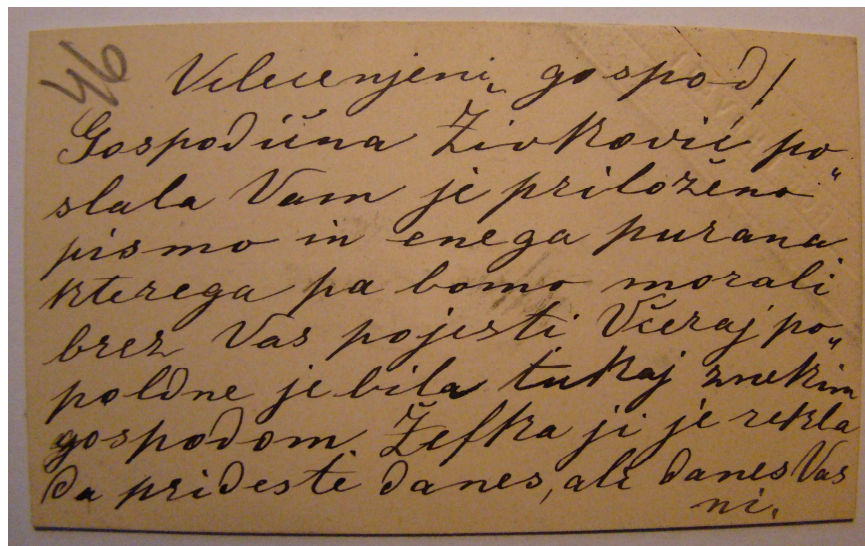 46
Velecenjeni gospod!
Gospodična Živković po„
slala Vam je priloženo
pismo in enega purana
kterega pa bomo morali
brez Vas pojesti Včeraj po„
poldne je bila tukaj znekim
gospodom Žefka ji je rekla
da prideste danes, ali danes Vas
ni.